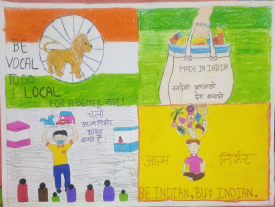 BE
VOCAL
TO GO
LOCAL
FOR A BETTER कल!
MADE IN INDIA
स्वदेशी अपनाओ
देश बचाओ
चलो
आत्मनिर्भर
भारत
बनाते हैं
आत्म निर्भर
BE INDIAN, BUY INDIAN.